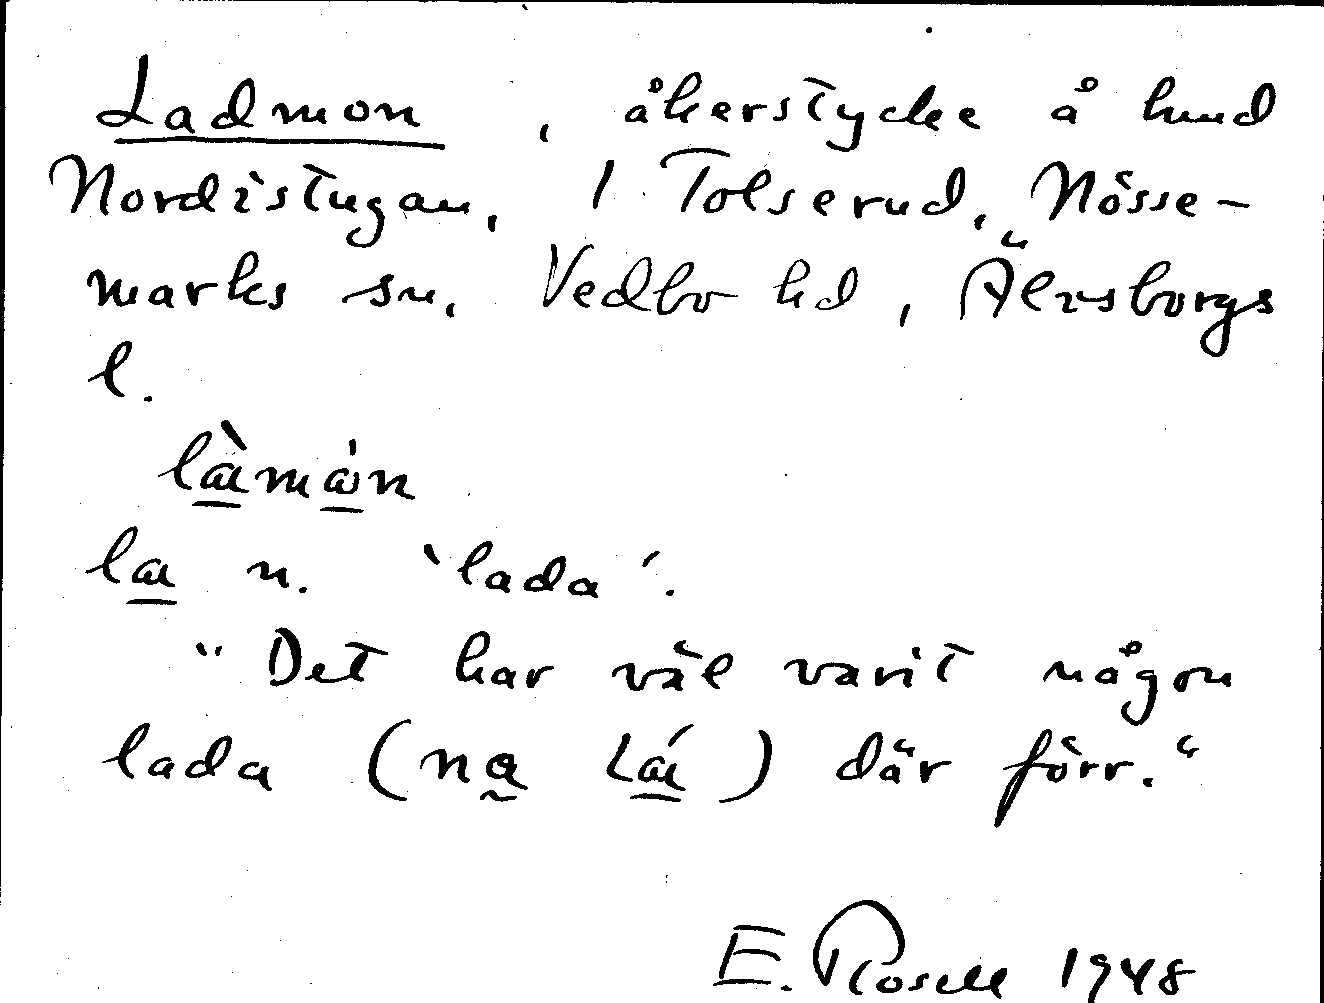 Ladmon, åkerstycke å hmd
Nordistugan, 1 Tolserud, Nösse-
marks sn, Vedbo hd, Älvsborgs
l.
là̱mɷ̱́n
la̱ n. `lada´.
"Det har väl varit någon
lada (na̰ Lá̱) där förr."
E. Rosell 1948